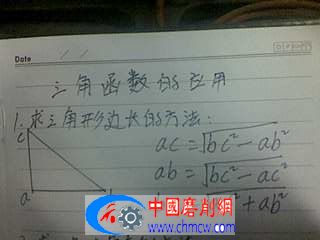 Date
三角函数的应用
1.求三角形边长的方法:
c
ac = √bc² - ab²
ab = √bc² - ac²
a
+ ab²
中國磨削網
www.chmcw.com